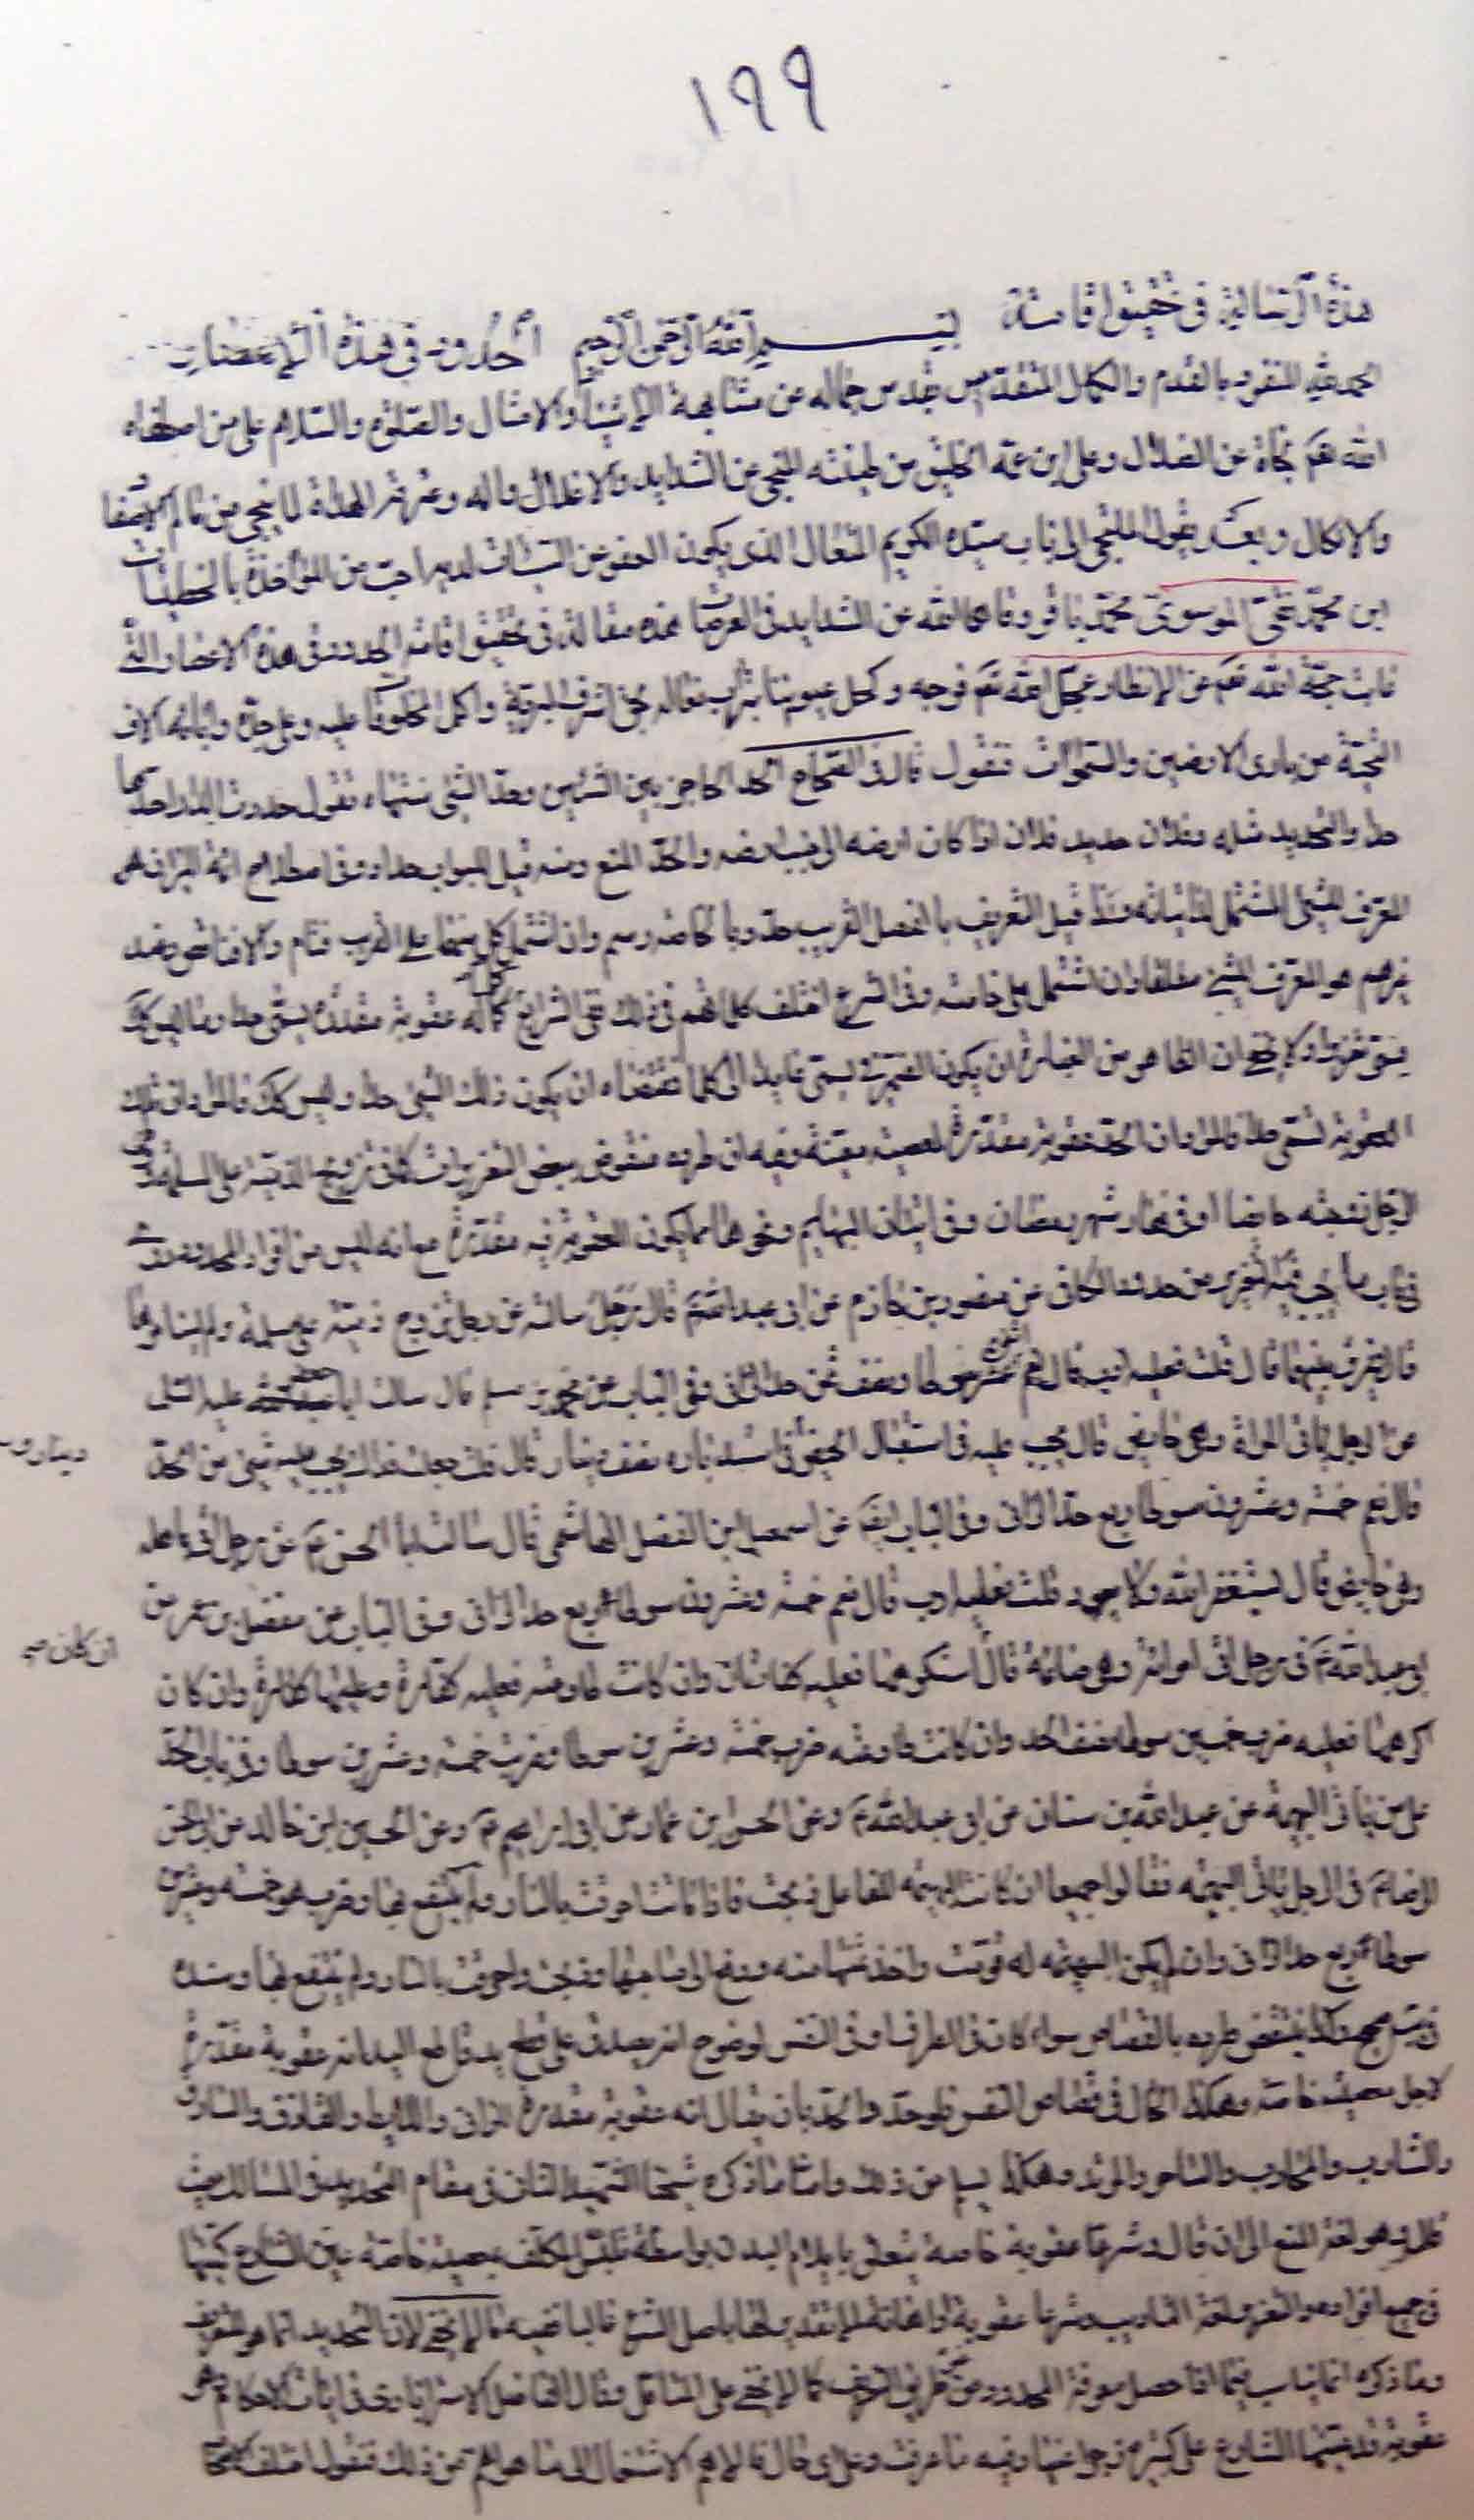 ١٩٩
هذه الرسالة في تحقيق اقامة بسم الله الرحمن الرحيم الحدود في هذه الاعصار
الحمد لله المتفرد بالقدم والكمال المتقدس بمجد من جماله عن مشابهة الاشباه والامثال والصلوة والسلام على من اصطفاه
الله تعم نجاة عن الضلال وعلى ابن عمه الخليق من طينته المنجي عن الشدايد والاغلال واله وعترته الهداة
والانكال وبعد يقول الملتجي الى باب سيده الكريم المتعال الذي يكون العفو عن السيئات لديه احب من المؤاخذة بالخطيئات
ابن محمد نقي الموسوي محمد باقر وقاهما الله عن الشدايد في العرصات هذه مقالة في تحقيق اقامة الحدود في هذه الاعصار التي
غابت حجة الله تعم عن الانظار عجل الله تعم فرجه وكحل عيوننا بتراب نعاله بحق اشرف البرية واكمل عليه وعلى جده وابائه الاف
التحية من بارئ الارضين والسموات فنقول قال في الصحاح الحد الحاجز بين الشيئين وحد الشئ منتهاه تقول حددت الدار احدها
حدا والتحديد مثله وفلان حديد فلان اذا كان ارضه الى جنب ارضه والحد المنع ومنه قيل للبواب حداد وفي اصطلاح ائمة الميزان هو
المعرف للشئ المشتمل لذاتياته ولذا قيل التعريف بالفصل القريب حد وبالخاصة رسم وان اشتمل كل منهما على القريب فتام والا فناقص وعند
غيرهم هو المعرف للشئ مطلقا وان اشتمل على خاصته وفي الشرع اختلف كلماتهم في ذلك ففي الشرايع كل ما له عقوبة مقدرة يسمى حدا وما ليس كك
يسمى تعزيرا ولا يخفى ان الظاهر من العبارة ان يكون الضمير في يسمى عايدا الى كلما فمقتضاه ان يكون ذلك الشئ حدا وليس كذلك فالمراد ان تلك
العقوبة تسمى حدا فالمراد ان الحد عقوبة مقدرة لمعصية معينة وفيه ان طرده منقوض ببعض التعزيرات كما في تزويج الذمية على المسلمة
الرجل زوجته حايضا او في نهار شهر رمضان وفي اتيان البهايم ونحوها مما يكون العقوبة فيه مقدرة مع انه ليس من افراد الحدود
في باب ما يجب فيه التعزير من حدود الكافي عن منصور بن حازم عن ابي عبد الله عم قال سالته عن رجل تزوج ذمية على مسلمة ولم يستامرها
قال يفرق بينهما قال قلت فعليه ادب قال نعم اثنى عشر سوطا ونصف ثمن حد الزاني وفي الباب عن محمد بن مسلم قال سالت ابا جعفر عليه السلم
عن الرجل ياتي المراة وهي حايض قال يجب عليه في استقبال الحيض دينار وفي استدباره نصف دينار قال قلت جعلت فداك يجب عليه شئ من الحد
قال نعم خمسة وعشرون سوطا ربع حد الزاني وفي الباب ايضا عن اسمعيل ابن الفضل الهاشمي قال سالت ابا الحسن عم عن رجل اتى اهله
وهي حايض قال يستغفر الله ولا يعود قلت فعليه ادب قال نعم خمسة وعشرون سوطا ربع حد الزاني وفي الباب عن مفضل بن عمر عن
ابي عبد الله عم في رجل اتى امراته وهي صائمة قال ان كان استكرهها فعليه كفارتان وان كانت طاوعته فعليه كفارة وعليها كفارة وان كان
اكرهها فعليه ضرب خمسين سوطا نصف الحد وان كانت طاوعته ضرب خمسة وعشرين سوطا وضربت خمسة وعشرين سوطا وفي باب الحد
على من ياتي البهيمة عن عبد الله بن سنان عن ابي عبد الله عم وعن ابن عمار عن ابي ابراهيم عم وعن الحسين ابن خالد عن ابي الحسن
الرضا عم في الرجل ياتي البهيمة فقالوا جميعا ان كانت البهيمة للفاعل ذبحت فاذا ماتت احرقت بالنار ولم ينتفع بها وضرب هو خمسة وعشرين
سوطا ربع حد الزاني وان لم يكن البهيمة له قومت واخذ ثمنها منه ودفع الى صاحبها وذبحت واحرقت بالنار ولم ينتفع بها وسنده
صحيح وكذا ينتقض طرده بالقصاص سواء كان في الطرف او في النفس لوضوح انه يصدق على قطع يد قاطع اليد انه عقوبة مقدرة
لاجل معصية خاصة وهكذا الحال في قصاص النفس بان يقال انه عقوبة مقدرة للزاني واللايط والقاذف والسارق
والشارب والمحارب والساحر والمرتد وهكذا يسلم من ذلك واما ما ذكره شيخنا الشهيد الثاني في مقام التحديد في المسالك حيث
قال وهو لغة المنع الى ان قال وشرعا عقوبة خاصة يتعلق بايلام البدن بواسطة تلبس المكلف بمعصية خاصة عين الشارع كميتها
في جميع افراده والتعزير لغة التاديب وشرعا عقوبة او اهانة لا تقدير لها باصل الشرع غالبا ففيه ما لا يخفى لان التحديد انما هو للتعريف
وما ذكره انما يناسب فيما اذا حصل معرفة الحدود من طريق كما لا يخفى على المتامل وقال الفاضل الاسترابادي في ايات الاحكام هو
عقوبة قد عينها الشارع على وفيه ما عرفت وعلى اي حال فالاهم الاشتغال الى ما هو اهم من ذلك فنقول اختلف